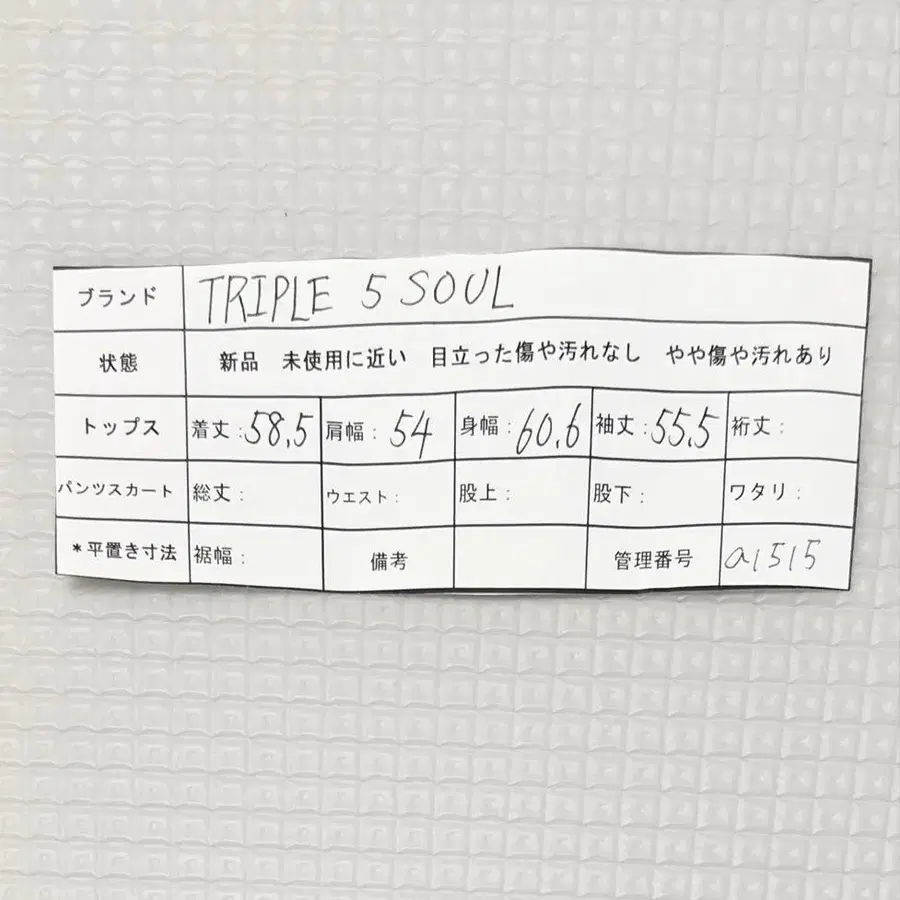 ブランド TRIPLE 5 SOUL
状態 新品 未使用に近い 目立った傷や汚れなし やや傷や汚れあり
トップス 着丈:58.5 肩幅: 54 身幅:60.6 袖丈:55.5 裄丈:
パンツスカート 総丈: ウエスト: 股上: 股下: ワタリ:
*平置き寸法 裾幅: 備考 管理番号 a1515